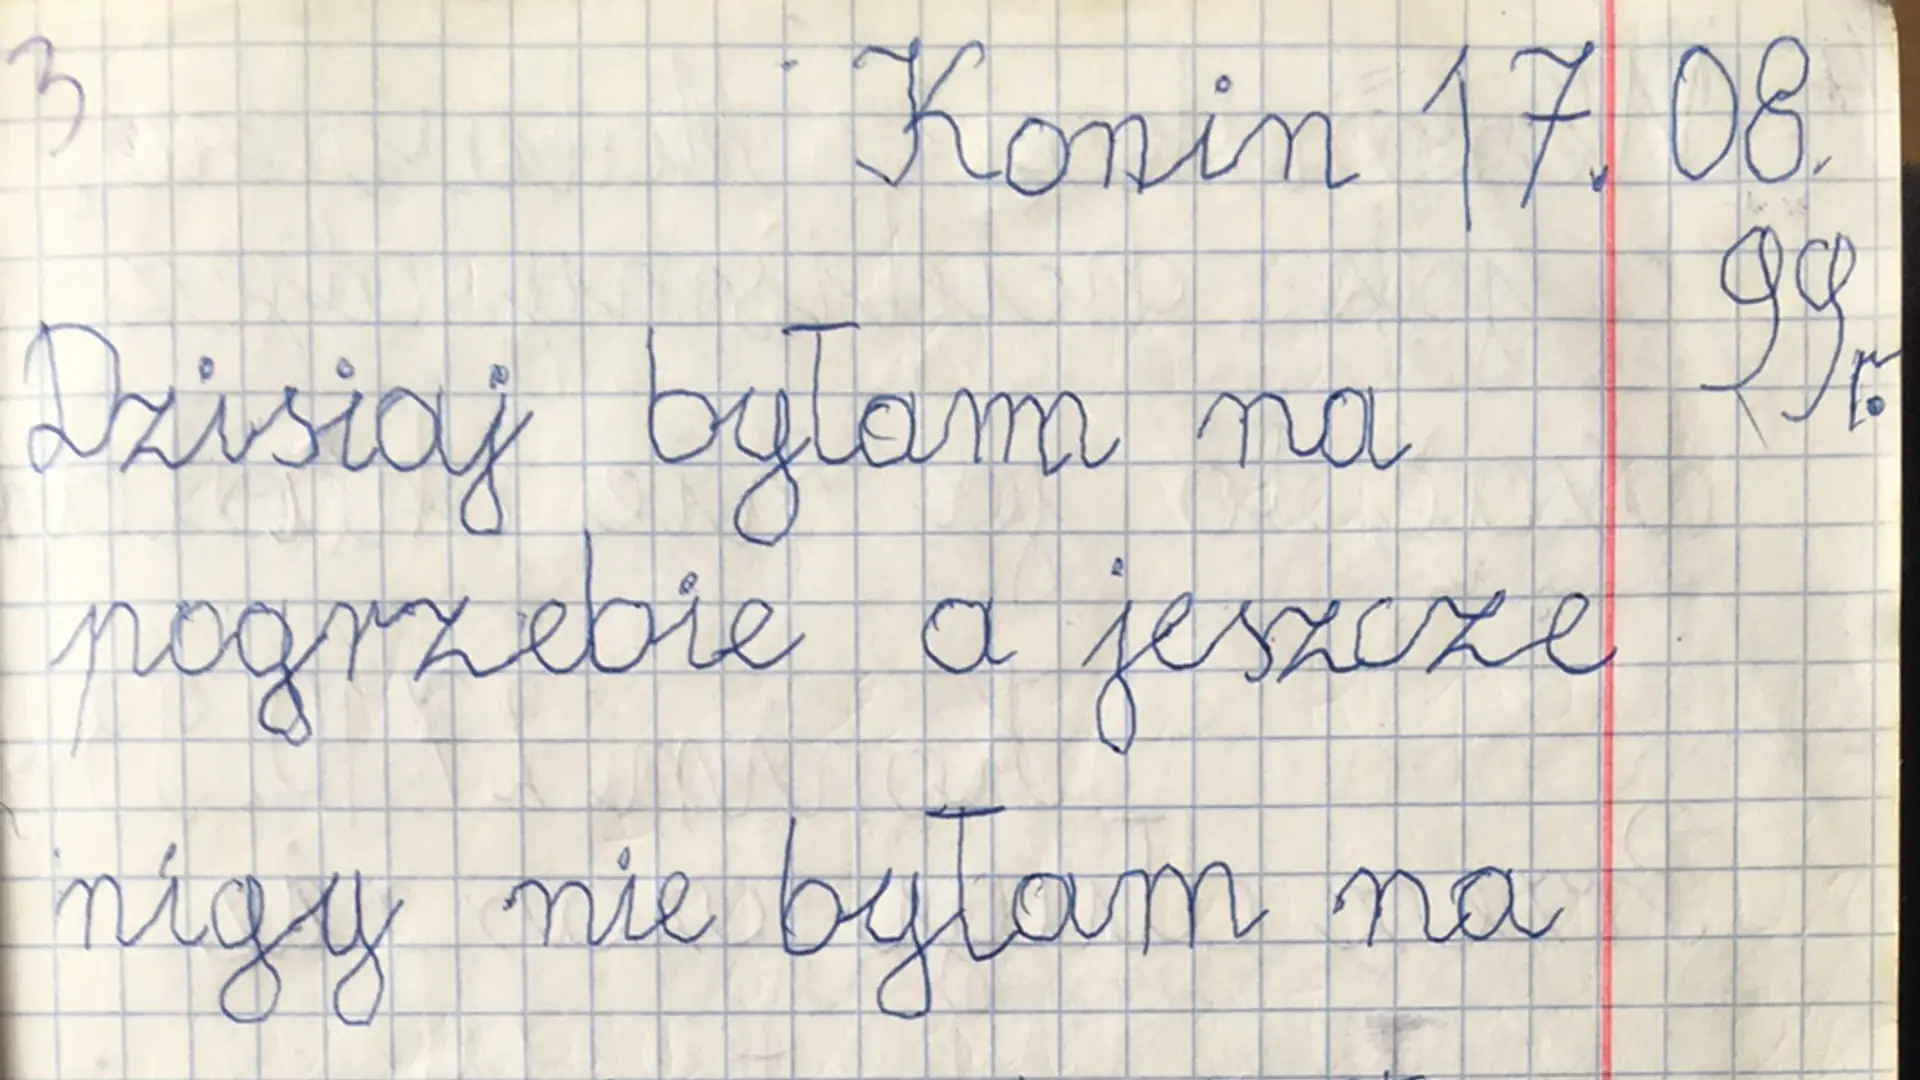 3
Konin 17. 08.
99r.
Dzisiaj byłam na
pogrzebie a jeszcze
nigy nie byłam na